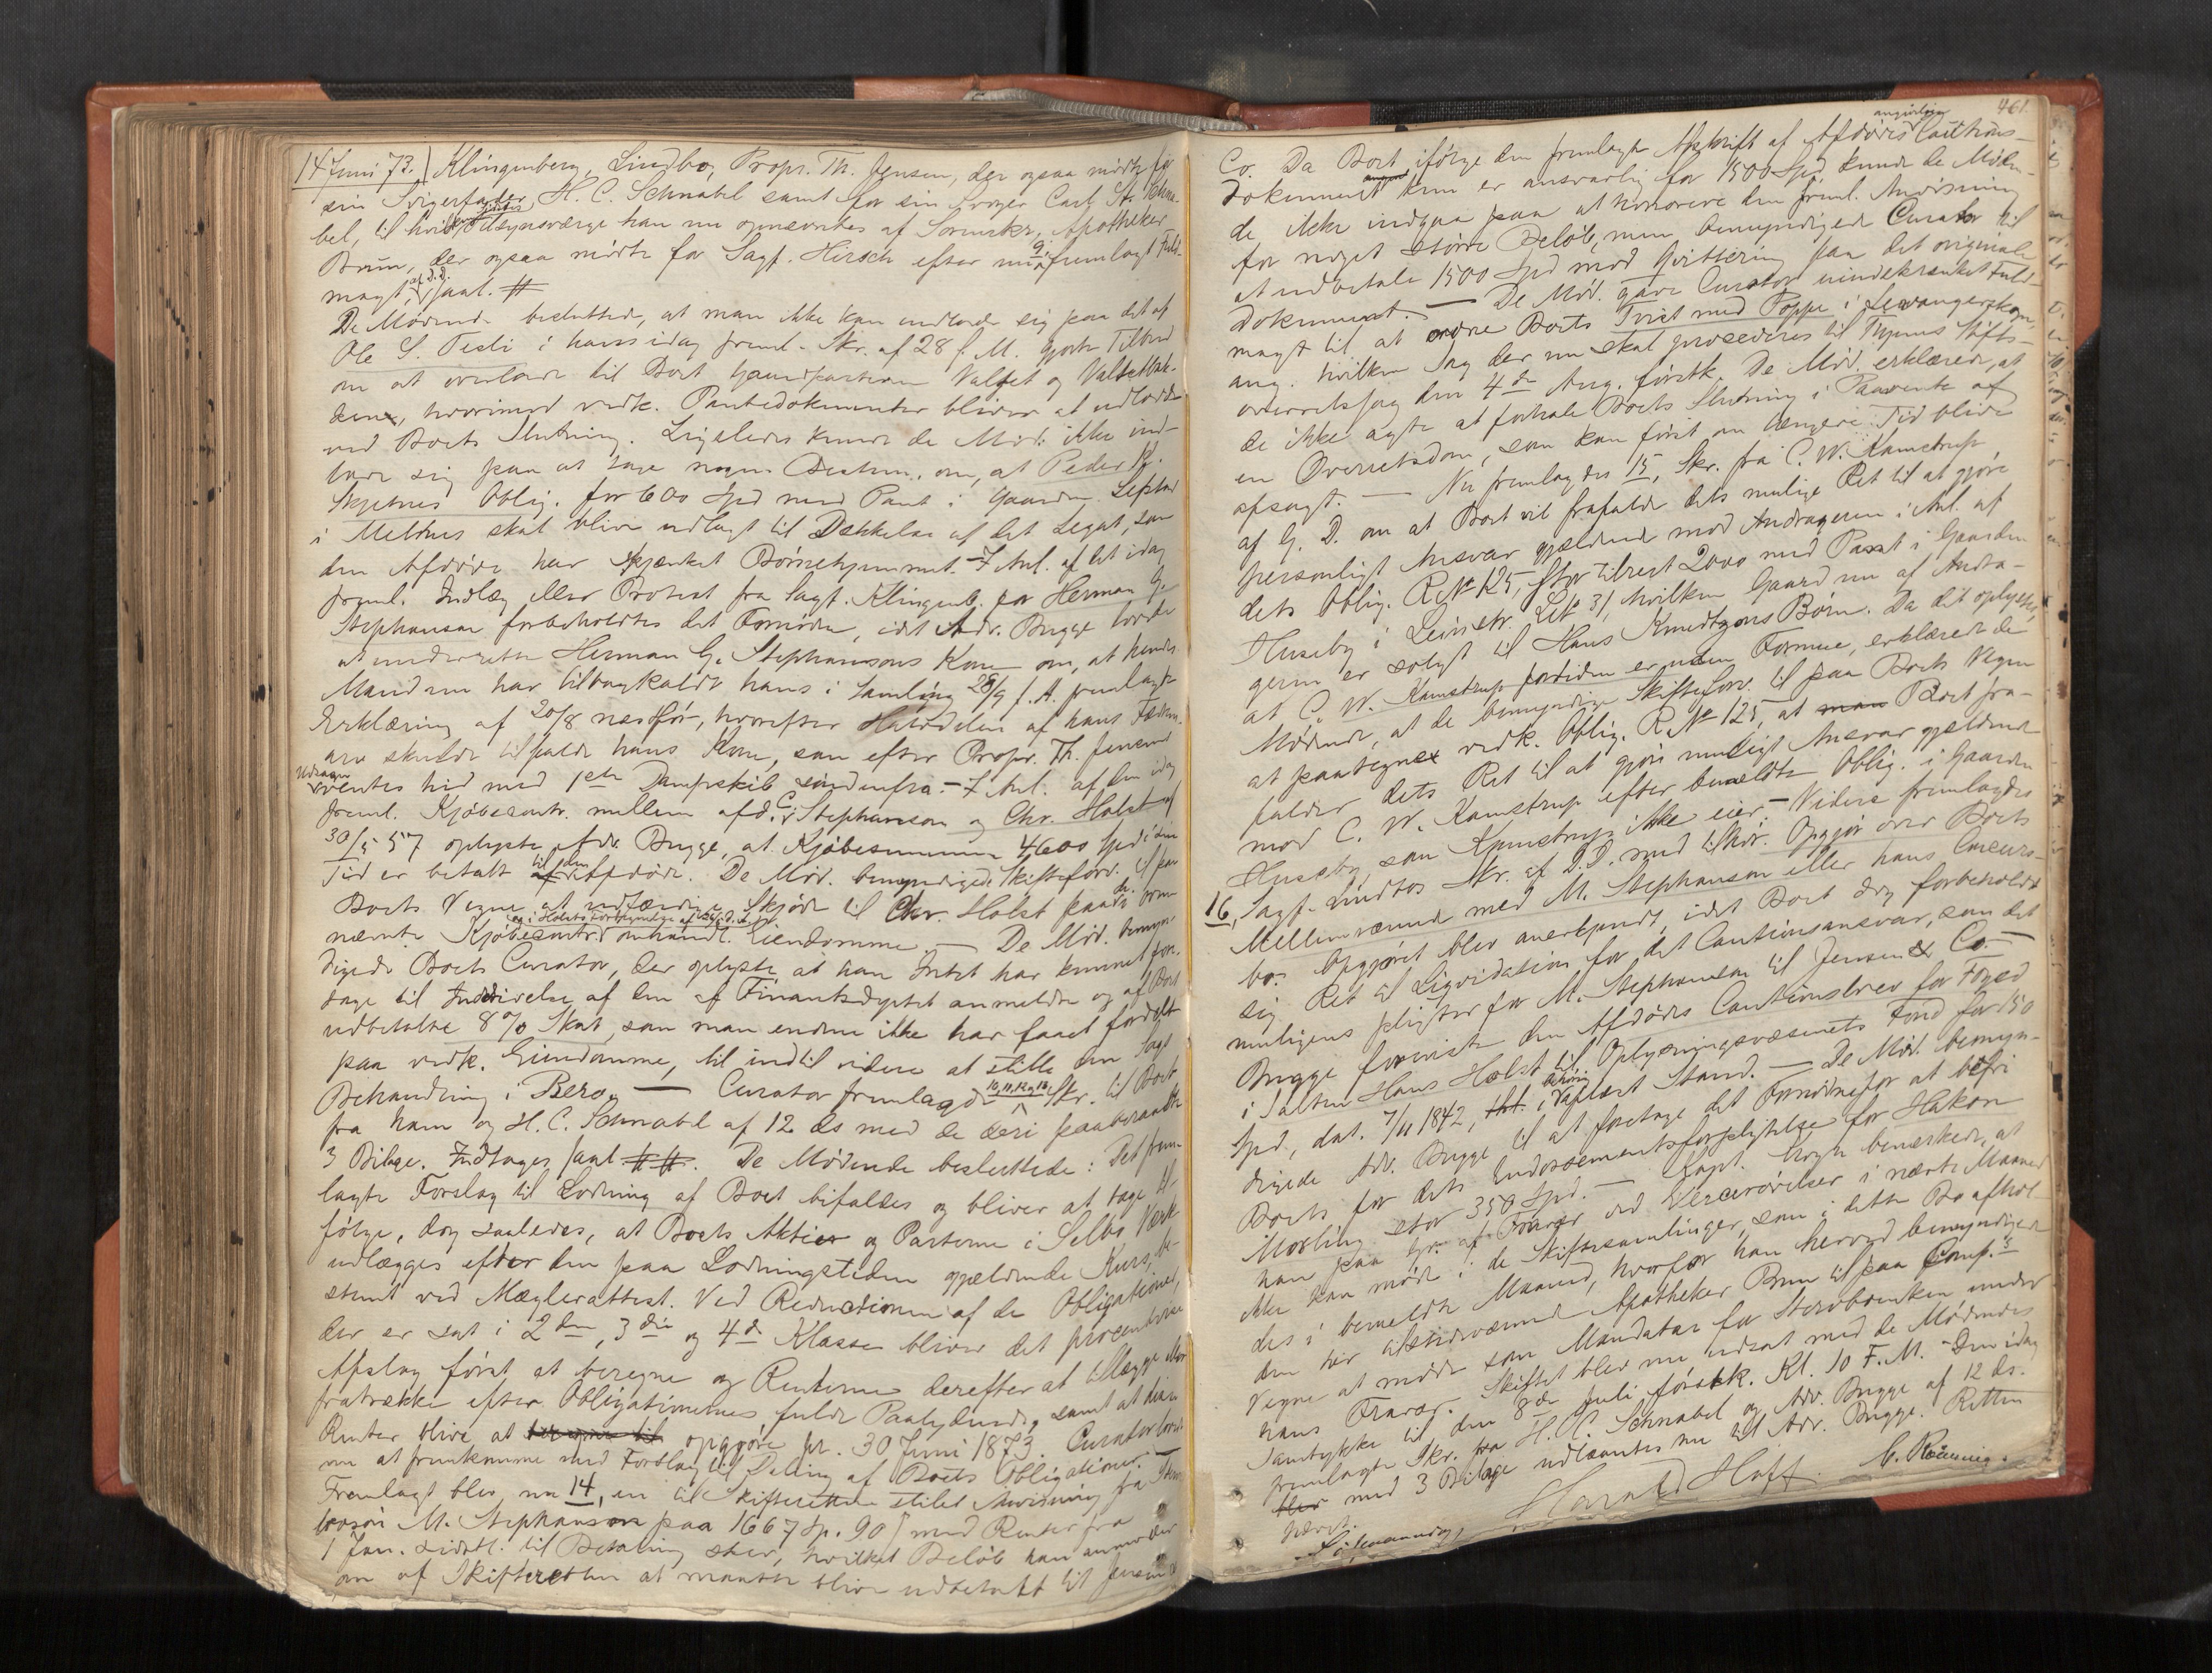 14 Juni 73. Klingenberg, Lindbo, Propr. Th. Jensen, der ogsaa mødte for
sin Svigerfader, H. C. Schnabel samt for sin Svoger Carl St. Schna-
bel, til hvis Tilsynsværge han nu opnævntes af Sorenskr., Apotheker
Brun, der ogsaa mødte for Sagf. Hirsch efter en 9, fremlagt Fuld-
magt, af d. D. saal. #
De Mødende besluttede, at man ikke kan indlade sig paa det af
Ole S. Testi i hans idag freml. Skr. af 28 f. M. gjorte Tilbud
om at overlade til Boet Gaardparterne Valset og Valset
hvorimod vedk. Pantedokumenter bliver at udlodde
ved Boets Slutning. Ligeledes kunde de Mød. ikke ind-
lade sig paa at tage nogen Bestem. om, at Peder K.
Skjetnes Oblig. for 600 Spd med Pant i Gaarden
i Melhus skal blive udlagt til Dækkelse af det Legat, som
den Afdøde har skjænket Børnehjemmet. - I Anl. af det idag
freml. Indlæg eller Protest fra Sagf. Klingenb. for Herman G.
Stephanson forbeholdtes det Fornødne, idet Adv. Bugge lovede
at underrette Herman G. Stephansons Kone om, at hendes
Mand nu har tilbagekaldt hans i Samling 28/9 f. A. fremlagte
Erklæring af 20/8 næstfør, hvorefter Halvdelen af hans Fædren-
arv skulde tilfalde hans Kone, som efter Propr. Th. Jensens
Udsagn ventes hid med 1ste Dampskib søndenfra. - I Anl. af den idag
freml. Kjøbecontr. mellem afd. C. Stephanson og Chr. Holst af
30/5 57 oplyste Adv. Bugge, at Kjøbesummen 4600 Spd i sin
Tid er betalt til den Afdøde. De Mød. bemyndigede Skifteforv. til paa
Boets Vegne at udfærdige Skjøde til Chr. Holst paa de oven-
nævnte Kjøbecontr. omhandl. Eiendomme. — De Mød. bemyn-
digede Boets Curator, der oplyste, at han Intet har kunnet fore-
tage til Inddrivelse af den af Finantsdeptet anmeldte og af Boet
udbetalte 8 % Skat, som man endnu ikke har faaet fordelt
paa vedk. Eiendomme, til indtil videre at stille den Sags
Behandling i Bero. — Curator fremlagde 10, 11, 12 og 13, Skr. til Boet
fra ham og H. C. Schnabel af 12 ds med de deri paaberaabte
3 Bilage. Indtages saal. # #. De Mødende besluttede: Det frem-
lagte Forslag til Lodning af Boet bifaldes og bliver at tage til
følge, dog saaledes, at Boets Aktier og Parterne i Selbo Værk
udlægges efter den paa Lodningstiden gjældende Kurs, be-
stemt ved Mæglerattest. Ved Reductionen af de Obligationer,
der er sat i 2den, 3die og 4de Klasse bliver det procentvise
Afslag først at beregne og Renterne derefter at tillægge eller
fratrække efter Obligationernes fulde Paalydende, samt at disse
Renter blive at opgjøre pr. 30 Juni 1873. Curator lovede
nu at fremkomme med Forslag til Deling af Boets Obligationer. —
Fremlagt blev nu 14, en til Skifteretten stilet Anvisning fra
M. Stephanson paa 1667 Sp. 90 ſ med Renter fra
1 Jan. sidstl. til Betaling sker, hvilket Beløb han anmoder
om af Skifteretten at maatte blive udbetalt til Jensen &
461.
Co. Da Boet ifølge den fremlagte Afskrift af Afdødes angivelige Cautions-
Dokument kun er ansvarlig for 1500 Spd kunde de Møden-
de ikke indgaa paa at honorere den freml. Anvisning
for noget større Beløb, men bemyndigede Curator til
at udbetale 1500 Spd mod Qvittering paa det originale
Dokument. — De Mød. gave Curator uindskrænket Fuld-
magt til at ordne Boets Tvist med Poppe i Levanger
ang. hvilken Sag der nu skal procederes til Thjems Stifts-
overretsdag den 4de Aug. førstk. De Mød. erklærede, at
de ikke agte at forhale Boets Slutning i Paavente af
en Overretsdom, som kan først om længere Tid blive
afsagt. — Nu fremlagdes 15, Skr. fra C. W. Kamstrup
af G. D. om at Boet vil frafalde dets mulige Ret til at gjøre
personligt Ansvar gjældende mod Andrageren i Anl. af
dets Oblig. R. No 125, stor tilrest 2000 med Pant i Gaarden
Huseby i Leinstr. Lit. 31, hvilken Gaard nu af Andra-
geren er solgt til Hans Knudtzons Børn. Da det oplystes,
at C. W. Kamstrup fortiden er uden Formue, erklærede de
Mødende, at de bemyndige Skifteforv. til paa Boets Vegne
at paategne vedk. Oblig. R. No 125, at man Boet fra-
falder dets Ret til at gjøre muligt Ansvar gjældende
mod C. W. Kamstrup efter bemeldte Oblig. i Gaarden
Huseby, som Kamstrup ikke eier. - Videre fremlagdes
16, Sagf. Lindbos Skr. af D. D. med tilhør. Opgjør over Boets
Mellemværende med M. Stephanson eller hans Concurs-
bo. Opgjøret blev anerkjendt, idet Boet dog forbeholdt
sig Ret til Liqvidation for det Cautionsansvar, som det
muligens pligter for M. Stephanson til Jensen & Co. —
Bugge foreviste den Afdødes Cautionsbrev for Foged
i Salten Hans Holst til Oplysningsvæsenets Fond for 150
Spd, dat. 7/11 1842, i behørig kasseret Stand. — De Mød. bemyn-
digede Adv. Bugge til at foretage det Fornødne for at befri
Boet for dets Endossementsforpligtelse for Hakon
Morling stor 350 Spd. — Kapt. Krogh bemærkede, at
han paa Gr. af Fravær ved Vexerøvelser i næste Maaned
ikke kan møde i de Skiftesamlinger, som i dette Bo afhol-
des i bemeldte Maaned, hvorfor han herved bemyndigede
den her tilstedeværende Apotheker Brun til paa Comp.s
Vegne at møde som Mandatar for Stervboenken under
hans Fravær. Skiftet blev nu udsat med de Mødendes
Samtykke til den 8de Juli førstk. Kl. 10 F. M. - Den idag
fremlagte Skr. fra H. C. Schnabel og Adv. Bugge af 12 ds.
med 3 Bilage udlaantes nu til Adv. Bugge. Retten
hævet.
Harald Hoff. C. Rønning.